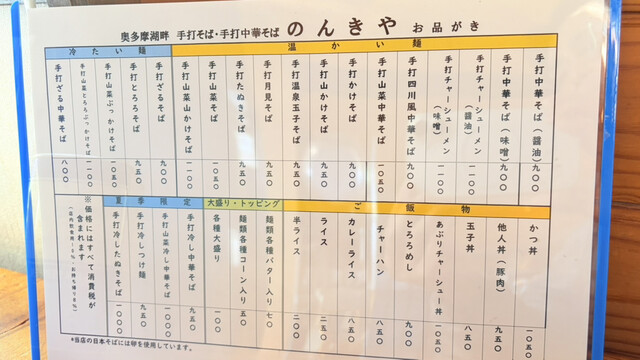 奥多摩湖畔 手打そば・手打中華そば のんきや お品がき
温かい麺
手打中華そば(醤油) 九〇〇
手打中華そば(味噌) 九〇〇
手打チャーシューメン(醤油) 一一〇〇
手打チャーシューメン(味噌) 一一〇〇
手打四川風中華そば 九〇〇
手打山菜中華そば 一〇五〇
手打かけそば
手打山かけそば 九〇〇
手打温泉玉子そば 九五〇
手打月見そば 九五〇
手打たぬきそば 九五〇
手打山菜そば
手打山菜山かけそば 一一〇〇
冷たい麺
手打ざるそば 九五〇
手打とろろそば 九五〇
手打山菜ぶっかけそば 一〇五〇
手打山菜とろろぶっかけそば 一一〇〇
手打ざる中華そば 八〇〇
ご飯物
かつ丼 一〇五〇
他人丼(豚肉) 九五〇
玉子丼 八五〇
あぶりチャーシュー丼 一〇五〇
とろろめし 九〇〇
チャーハン 八五〇
カレーライス 八五〇
ライス 二五〇
半ライス 二〇〇
大盛り・トッピング
麺類各種バター入り 七〇
麺類各種コーン入り 五〇
各種大盛り 一〇〇
夏季限定
手打冷し中華そば 九五〇
手打山菜冷し中華そば 一〇〇〇
手打冷しつけ麺 九五〇
手打冷したぬきそば 一〇〇〇
※価格にはすべて消費税が
含まれます
(店内飲食用10%・お持ち帰り8%)
*当店の日本そばには卵を使用しています。